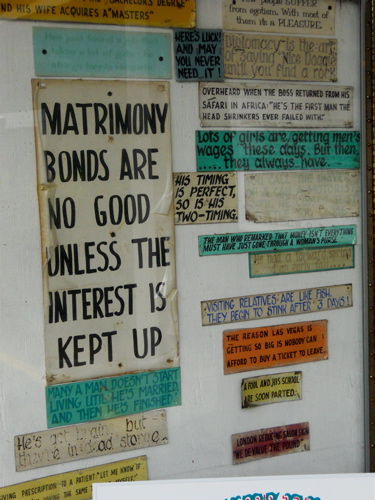 BACHELORS DEGREE
ND HIS WIFE ACQUIRES A "MASTERS"
few people SUFFER
from egotism. With most of
them its a PLEASURE.
HERE'S LUCK!
AND MAY
YOU NEVER
NEED IT!
Diplomacy is the art
of saying "Nice Doggie"
until you find a rock
OVERHEARD WHEN THE BOSS RETURNED FROM HIS
SAFARI IN AFRICA: "HE'S THE FIRST MAN THE
HEAD SHRINKERS EVER FAILED WITH."
MATRIMONY
BONDS ARE
NO GOOD
UNLESS THE
INTEREST IS
KEPT UP
Lots of girls are getting men's
wages these days. But then,
....they always have.
HIS TIMING
IS PERFECT,
SO IS HIS
TWO-TIMING.
THE MAN WHO REMARKED THAT MONEY ISN'T EVERYTHING
MUST HAVE JUST GONE THROUGH A WOMAN'S PURSE.
He had a
VISITING RELATIVES ARE LIKE FISH,
THEY BEGIN TO STINK AFTER 3 DAYS!
THE REASON LAS VEGAS IS
GETTING SO BIG IS NOBODY CAN
AFFORD TO BUY A TICKET TO LEAVE.
MANY A MAN DOESN'T START
LIVING UNTIL HE'S MARRIED.
AND THEN HE'S FINISHED!
A FOOL AND HIS SCHOOL
ARE SOON PARTED.
He's got brains but
they're in dead storage.
LONDON SIGN
WE DE-VALUE THE POUND
PRESCRIPTION TO A PATIENT "LET ME KNOW IF
THE SAME